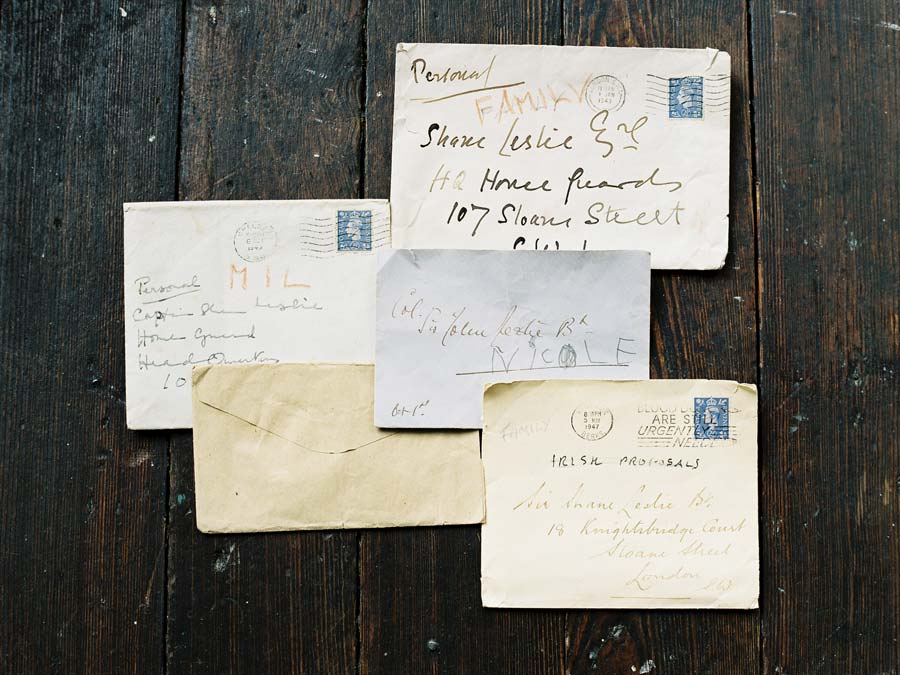 Personal
FAMILY
Shane Leslie Esq
HQ Home Guards
107 Sloane Street
S.W.1
MIL
Personal
Captain Shane Leslie
Home Guard
Head Quarters
10
Col.
Sir John Leslie Bt
NICOLE
Oct 1st
FAMILY
8 APR
1947
ARE STILL
URGENTLY
IRISH PROPOSALS
Sir Shane Leslie Bt.
18 Knightsbridge Court
Sloane Street
London
SW